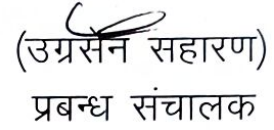 (उग्रसेन सहारण)
प्रबन्ध संचालक